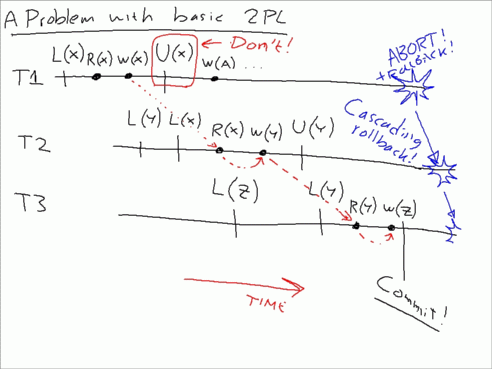 A Problem with basic 2PL
T1 L(x) R(x) W(x) U(x) ← Don't! W(A) ... ABORT! + Rollback!
T2 L(Y) L(x) R(x) W(Y) U(Y) Cascading rollback!
T3 L(Z) L(Y) R(Y) W(Z)
TIME
Commit!